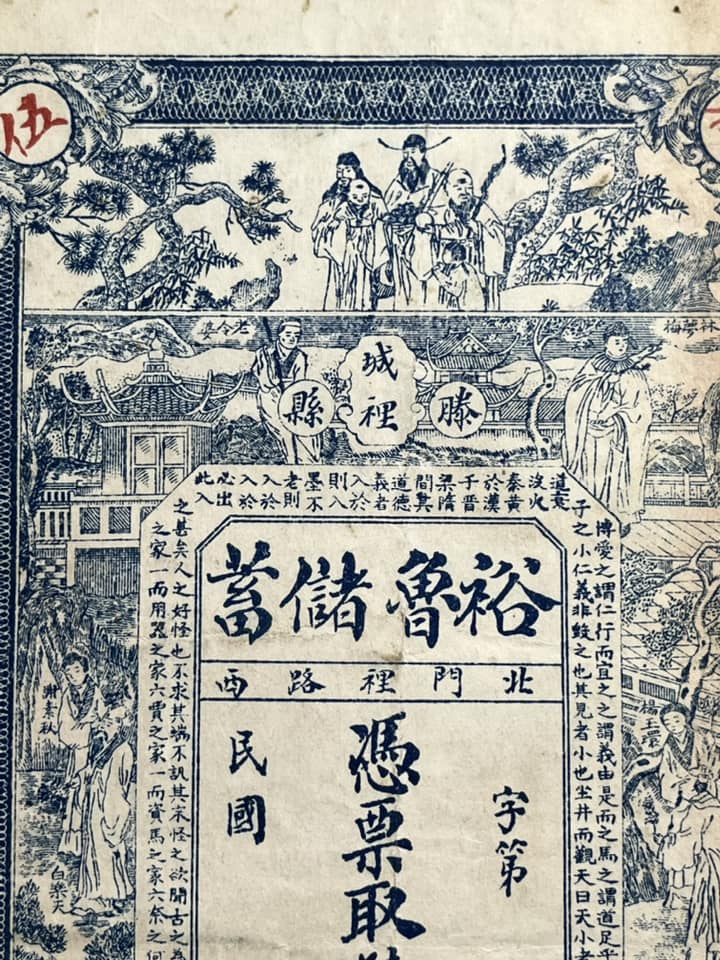 伍
老令婆
夢梅
滕
城裡
縣
博愛之謂仁行而宜之之謂義由是而之馬之謂道足乎
子之小仁義非毀之也其見者小也坐井而觀天曰天小者
道衰
沒火
秦黃
於漢
于晉
梁隋
間其
道德
義者
入於
則入
墨不
老則
入於
入於
心出
此入
之甚矣人之好怪也不求其端不訊其末怪之欲聞古之為
之家一而用器之家六賈之家一而資馬之家六奈之何
裕魯儲蓄
北門裡路西
字第
憑票取
民國
楊玉環
謝素秋
白樂天